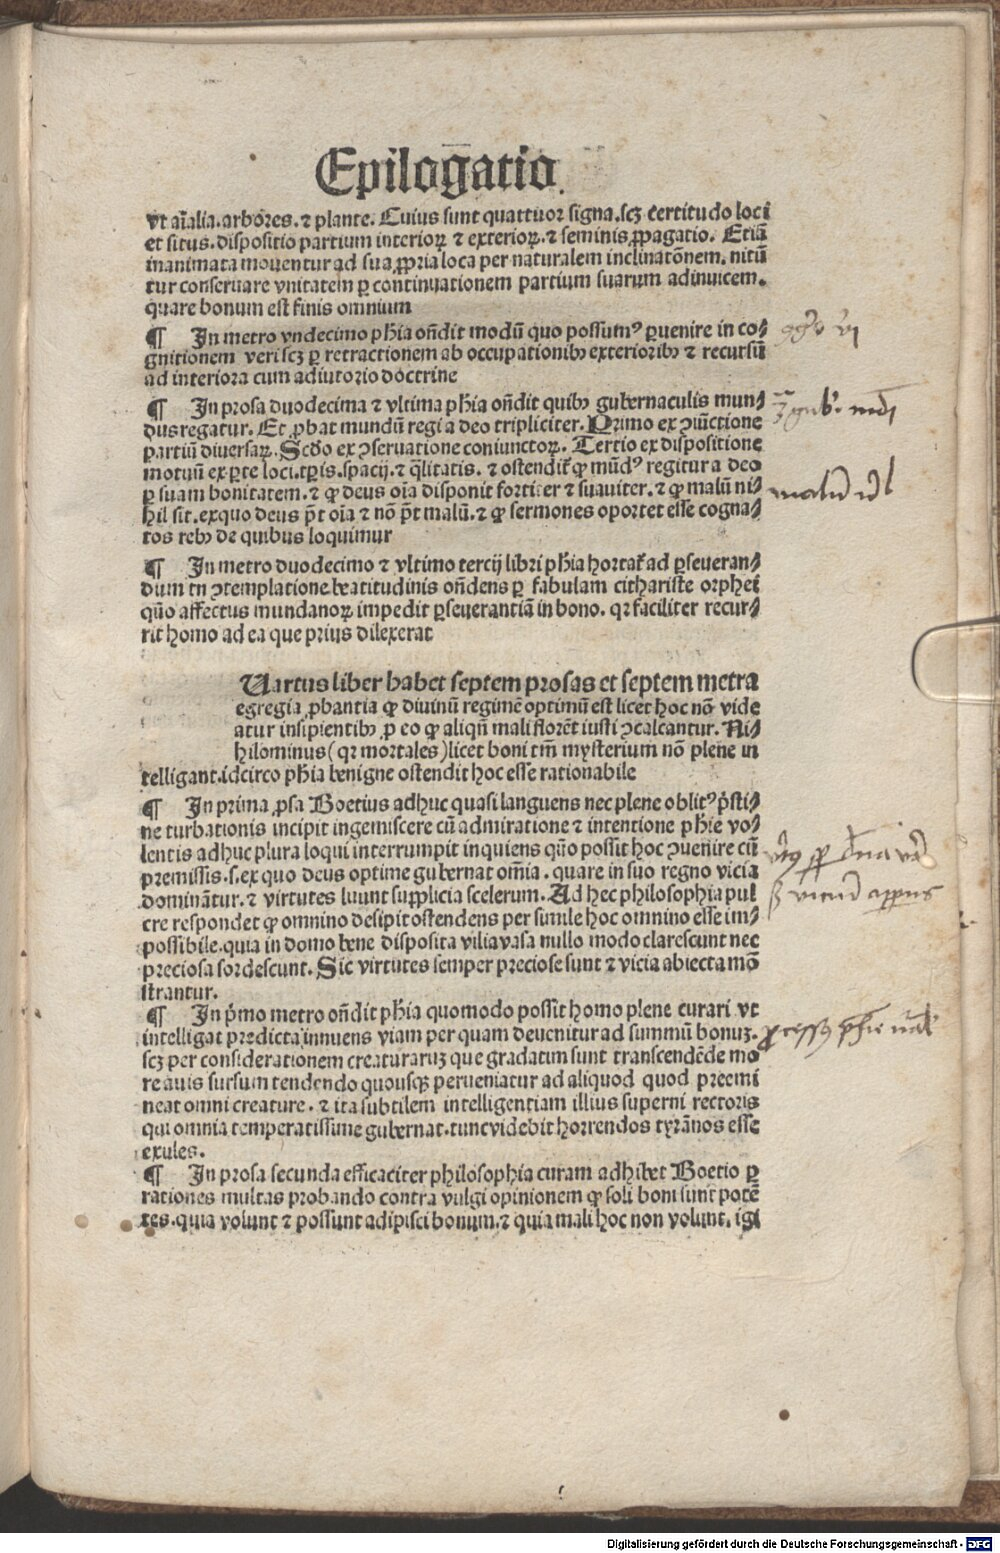 Epilogatio.
vt aīalia. arbores. ⁊ plante. Cuius sunt quattuor signa. scꝫ certitudo loci
et situs. dispositio partium interioꝝ ⁊ exterioꝝ. ⁊ seminis ꝓpagatio. Etiā
inanimata mouentur ad sua ꝓpria loca per naturalem inclinatōnem. nitū
tur conseruare vnitatem ꝑ continuationem partium suarum adinuicem.
quare bonum est finis omnium
¶ In metro vndecimo phīa oñdit modū quo possumꝰ ꝑuenire in co⸗
gnitionem veri scꝫ ꝑ retractionem ab occupationibꝫ exterioribꝫ ⁊ recursū
ad interiora cum adiutorio doctrine
¶ In prosa duodecima ⁊ vltima phīa oñdit quibꝫ gubernaculis mun⸗
dus regatur. Et ꝓbat mundū regi a deo tripliciter. Primo ex ꝯiūctione
partiū diuersaꝝ. Scđo ex ꝯseruatione coniunctoꝝ. Tertio ex dispositione
motuū ex ꝑte loci. tꝑis. spacij. ⁊ q̄litatis. ⁊ ostendit̄ ꝙ mūdꝰ regitur a deo
ꝑ suam bonitatem. ⁊ ꝙ deus oīa disponit fortiter ⁊ suauiter. ⁊ ꝙ malū ni⸗
hil sit. ex quo deus pōt oīa ⁊ nō pōt malū. ⁊ ꝙ sermones oportet esse cogna⸗
tos rebꝫ de quibus loquimur
¶ In metro duodecimo ⁊ vltimo tercij libri phīa hortat̄ ad ꝑseueran⸗
dum in ꝯtemplatione beatitudinis oñdens ꝑ fabulam cithariste orphei
quō affectus mundanoꝝ impedit ꝑseuerantiā in bono. qꝛ faciliter recur⸗
rit homo ad ea que prius dilexerat
Uartus liber habet septem prosas et septem metra
egregia ꝓbantia ꝙ diuinū regimē optimū est licet hoc nō vide
atur insipientibꝫ ꝑ eo ꝙ aliqñ mali florēt iusti ꝯcalcantur. Ni⸗
hilominus (qꝛ mortales) licet boni tm̄ mysterium nō plene in
telligant. idcirco phīa benigne ostendit hoc esse rationabile
¶ In prima ꝓsa Boetius adhuc quasi languens nec plene oblitꝰ p̄sti⸗
ne turbationis incipit ingemiscere cū admiratione ⁊ intentione phīe vo⸗
lentis adhuc plura loqui interrumpit inquiens quō possit hoc ꝯuenire cū
premissis. s. ex quo deus optime gubernat om̄ia. quare in suo regno vicia
dominātur. ⁊ virtutes luunt supplicia scelerum. Ad hec philosophia pul
cre respondet ꝙ omnino desipit ostendens per simile hoc omnino esse im⸗
possibile. quia in domo bene disposita vilia vasa nullo modo clarescunt nec
preciosa sordescunt. Sic virtutes semper preciose sunt ⁊ vicia abiecta mō
strantur.
¶ In p̄mo metro oñdit phīa quomodo possit homo plene curari vt
intelligat predicta innuens viam per quam deuenitur ad summū bonuꝫ.
scꝫ per considerationem creaturaruꝫ que gradatim sunt transcendēde mo
re auis sursum tendendo quousqꝫ perueniatur ad aliquod quod preemi
neat omni creature. ⁊ ita subtilem intelligentiam illius superni rectoris
qui omnia temperatissime gubernat. tunc videbit horrendos tyrānos esse
exules.
¶ In prosa secunda efficaciter philosophia curam adhibet Boetio ꝑ
rationes multas probando contra vulgi opinionem ꝙ soli boni sunt potē
tes. quia volunt ⁊ possunt adipisci bonum. ⁊ quia mali hoc non volunt. igi
Digitalisierung gefördert durch die Deutsche Forschungsgemeinschaft - DFG